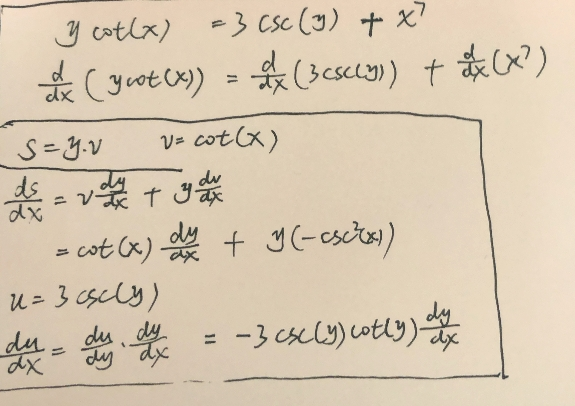 y cot(x) = 3 csc(y) + x⁷
d/dx (y cot(x)) = d/dx (3 csc(y)) + d/dx (x⁷)
s = y·v v = cot(x)
ds/dx = v dy/dx + y dv/dx
= cot(x) dy/dx + y(-csc²(x))
u = 3 csc(y)
du/dx = du/dy · dy/dx = -3 csc(y) cot(y) dy/dx